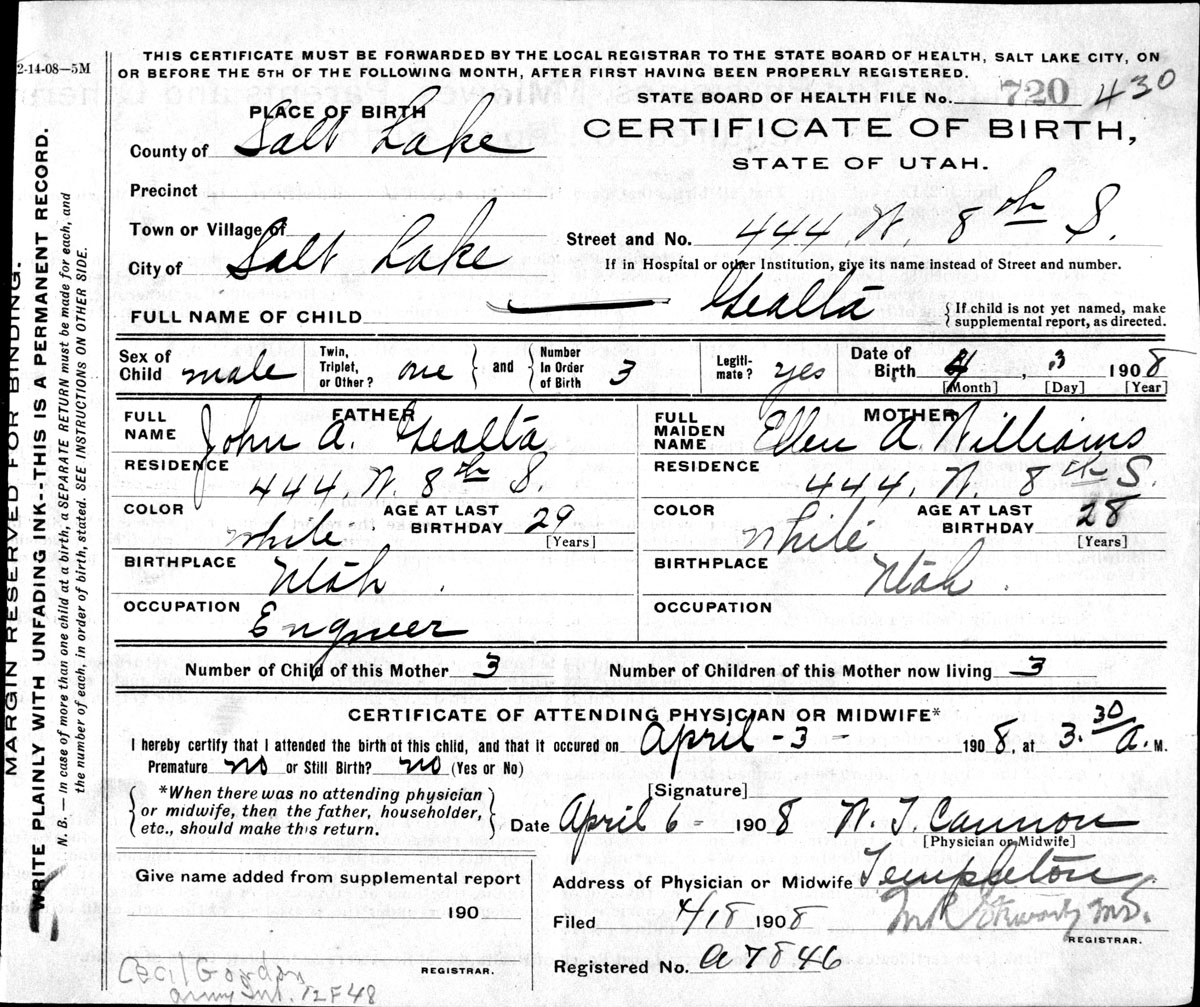 2-14-08—5M
THIS CERTIFICATE MUST BE FORWARDED BY THE LOCAL REGISTRAR TO THE STATE BOARD OF HEALTH, SALT LAKE CITY, ON
OR BEFORE THE 5TH OF THE FOLLOWING MONTH, AFTER FIRST HAVING BEEN PROPERLY REGISTERED.
STATE BOARD OF HEALTH FILE No. 720 430
CERTIFICATE OF BIRTH,
STATE OF UTAH.
PLACE OF BIRTH
County of Salt Lake
Precinct
Town or Village of
City of Salt Lake
Street and No. 444. W. 8th S.
If in Hospital or other Institution, give its name instead of Street and number.
FULL NAME OF CHILD Gealta
{If child is not yet named, make
supplemental report, as directed.
Sex of Child male
Twin, Triplet, or Other? one } and { Number In Order of Birth 3
Legiti-mate? yes
Date of Birth 4, 3 1908
[Month] [Day] [Year]
FATHER
FULL NAME John A. Gealta
RESIDENCE 444. W. 8th S.
COLOR White AGE AT LAST BIRTHDAY 29
[Years]
BIRTHPLACE Utah.
OCCUPATION Engneer
MOTHER
FULL MAIDEN NAME Ellen A. Williams
RESIDENCE 444. W. 8th S
COLOR White AGE AT LAST BIRTHDAY 28
[Years]
BIRTHPLACE Utah.
OCCUPATION
Number of Child of this Mother 3 Number of Children of this Mother now living 3
CERTIFICATE OF ATTENDING PHYSICIAN OR MIDWIFE*
I hereby certify that I attended the birth of this child, and that it occured on April - 3 - 1908, at 3.30 A. M.
Premature no or Still Birth? no (Yes or No)
{*When there was no attending physician
or midwife, then the father, householder,
etc., should make this return.}
[Signature]
Date April 6 - 1908 W. T. Cannon
[Physician or Midwife]
Give name added from supplemental report
190
REGISTRAR.
Address of Physician or Midwife Templeton
Filed 4/18 1908 M.D.
REGISTRAR.
Registered No. A7846
Cecil Gordon
Army Int. 12F48
MARGIN RESERVED FOR BINDING.
WRITE PLAINLY WITH UNFADING INK--THIS IS A PERMANENT RECORD.
N. B.— In case of more than one child at a birth, a SEPARATE RETURN must be made for each, and
the number of each, in order of birth, stated. SEE INSTRUCTIONS ON OTHER SIDE.